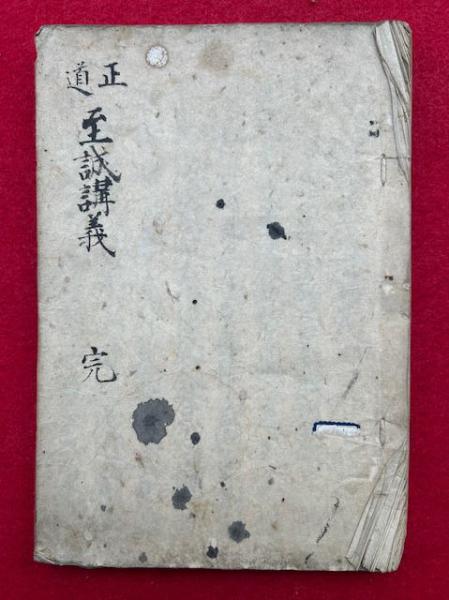 正道
至誠講義 完